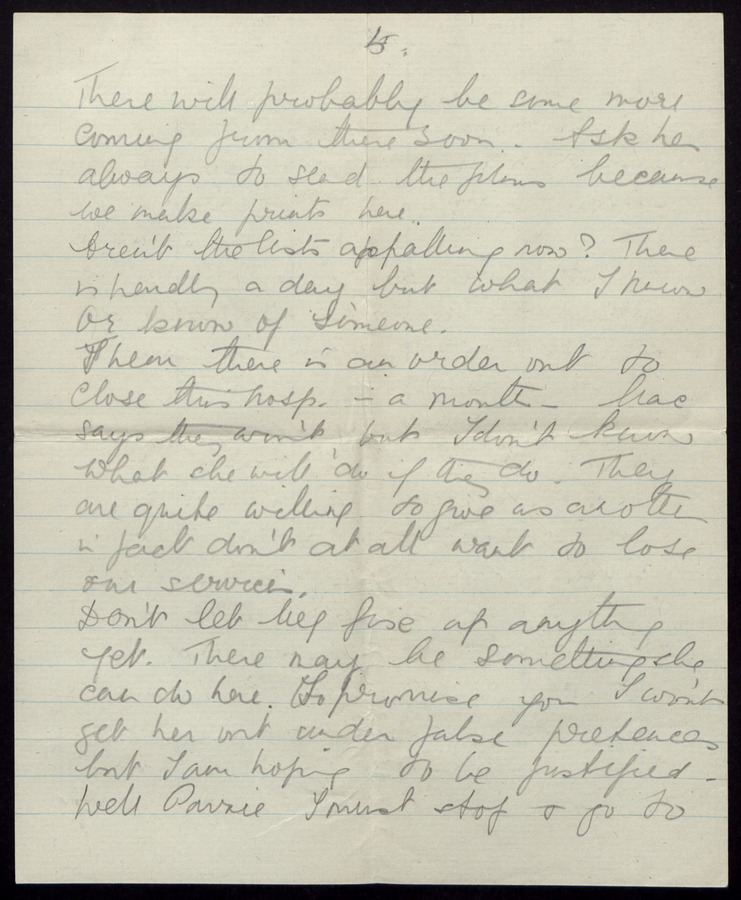 5.
There will probably be some more
coming from there soon. Ask her
always to send the films because
we make prints here.
Aren't the lists appalling now? There
is hardly a day but what I know
or know of someone.
Then there is an order out to
close this hosp. in a month - Mac
says they won't but I don't know
what she will do if they do. They
are quite willing to give us another
in fact don't at all want to lose
our services.
Don't let Meg fix up anything
yet. There may be something she
can do here. I promise you I won't
get her out under false pretences
but I am hoping to be justified -
Well I must stop & go to